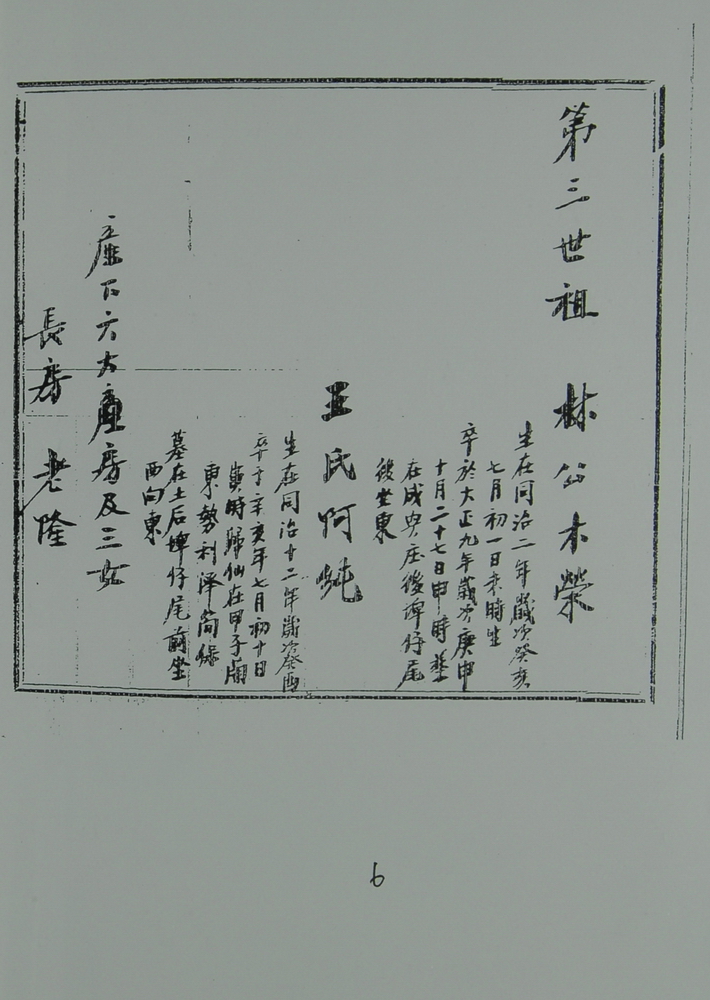 第三世祖　林公木榮
生在同治二年歲次癸亥
七月初一日未時生
卒於大正九年歲次庚申
十月二十七日申時葬
在成興庄後埤仔尾
後坐東
王氏阿純
生在同治十二年歲次癸酉
卒于辛亥年七月初十日
寅時歸仙在甲子蘭
東勢利澤簡保
墓在土后埤仔尾前坐
西向東
產下六大房及三女
長房　老隆
6